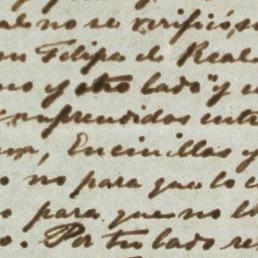 al no se verificó
Felipe de Real
no y otro lado" y
comprendidos entr
Encinillas y
o no para que lo
o para que no l
o. Por tro lado re